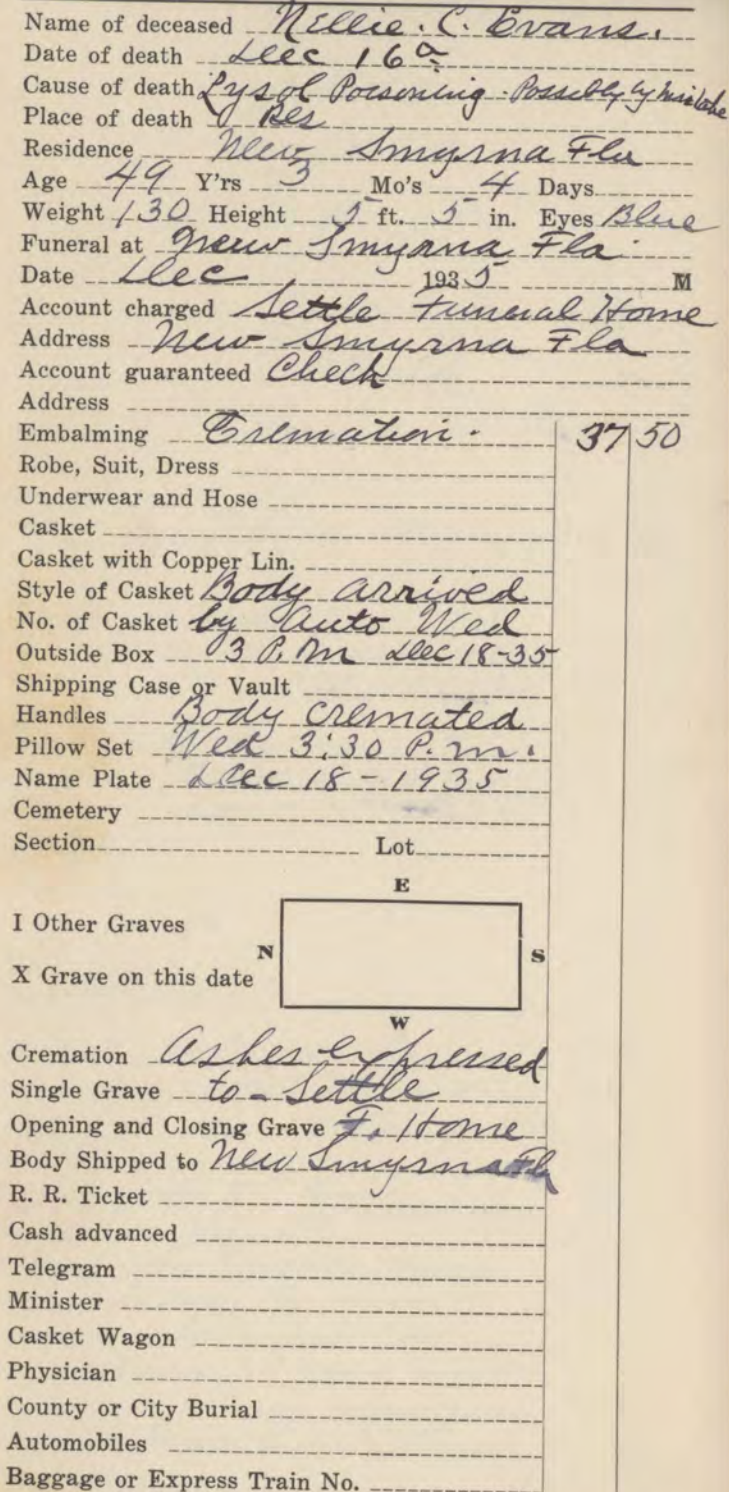 Name of deceased Nellie. C. Evans.
Date of death Dec 16
Cause of death Lysol Poisoning - Possibly by mistake
Place of death Res
Residence New Smyrna Fla
Age 49 Y'rs 3 Mo's 4 Days
Weight 130 Height 5 ft. 5 in. Eyes Blue
Funeral at New Smyrna Fla.
Date Dec 1935 M
Account charged Settle Funeral Home
Address New Smyrna Fla
Account guaranteed Check
Address
Embalming Cremation. 37 50
Robe, Suit, Dress
Underwear and Hose
Casket
Casket with Copper Lin.
Style of Casket Body arrived
No. of Casket by Auto Wed
Outside Box 3 P.m Dec 18-35
Shipping Case or Vault
Handles Body Cremated
Pillow Set Wed 3:30 P.m.
Name Plate Dec 18-1935
Cemetery
Section Lot
E
I Other Graves
N S
X Grave on this date
W
Cremation Ashes expressed
Single Grave to - Settle
Opening and Closing Grave F. Home
Body Shipped to New Smyrna Fla
R. R. Ticket
Cash advanced
Telegram
Minister
Casket Wagon
Physician
County or City Burial
Automobiles
Baggage or Express Train No.